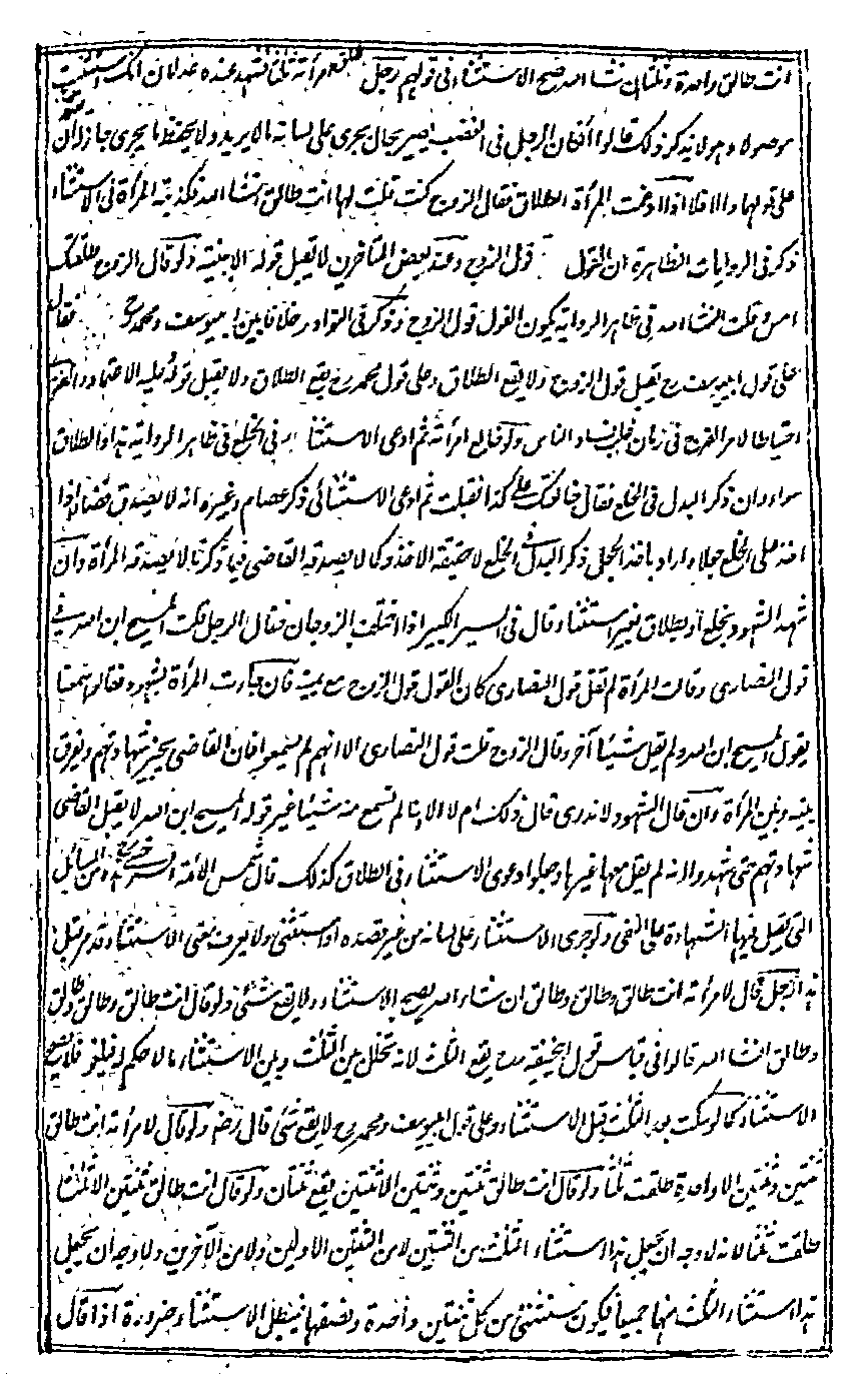 انت طالق واحدة وثلثا ان شاء الله صح الاستثناء في قولهم رجل طلق امرأته ثلثا فشهد عنده عدلان انك استثنيت
موصولا وهو لا يذكر ذلك قالوا ان كان الرجل في الغضب يصير بحال يجري على لسانه ما لا يريد ولا يحفظ ما يجري جاز له ان
على قولهما والا فلا اذا ادعت المرأة الطلاق فقال الزوج كنت قلت لها انت طالق ان شاء الله فكذبته المرأة في الاستثناء
ذكر في الروايات الظاهرة ان القول قول الزوج وعند بعض المتأخرين لا تقبل قوله الا ببينة ولو قال الزوج طلقتك
امس وقلت ان شاء الله في ظاهر الرواية يكون القول قول الزوج وذكر في النوادر خلافا بين ابيوسف ومحمد رح فقال
على قول ابيوسف رح يقبل قول الزوج ولا يقع الطلاق وعلى قول محمد رح يقع الطلاق ولا يقبل قوله وعليه الاعتماد والفتوى
احتياطا لامر الفرج في زمان غلب فساد الناس ولو خالع امرأته ثم ادعى الاستثناء في الخلع في ظاهر الرواية هذا والطلاق
سواء وان ذكر البدل في الخلع فقال خالعتك على كذا فقبلت ثم ادعى الاستثناء ذكر عصام وغيره انه لا يصدق قضاء اذا
اخذ على الخلع جعلا واراد باخذ الجعل ذكر البدل في الخلع لا حقيقة الاخذ وكما لا يصدقه القاضي فيما ذكرنا لا يصدقه المرأة وان
شهد الشهود بخلع او بطلاق بغير استثناء قال في السير الكبير اذا اختلف الزوجان فقال الرجل قلت المسيح ابن الله في
قول النصارى وقالت المرأة لم تقل قول النصارى كان القول قول الزوج مع يمينه فان جاءت المرأة بشهود فقالوا سمعنا
يقول المسيح ابن الله ولم يقل شيئا آخر وقال الزوج قلت قول النصارى الا انهم لم يسمعوا فان القاضي يجيز شهادتهم ويفرق
بينه وبين المرأة وان قال الشهود لا ندري قال ذلك ام لا الا انا لم نسمع منه شيئا غير قوله المسيح ابن الله لا يقبل القاضي
شهادتهم حتى يشهدوا انه لم يقل معها غيرها وجعلوا دعوى الاستثناء في الطلاق كذلك قال شمس الائمة السرخسي رح هذه من المسائل
التي يقبل فيها الشهادة على النفي ولو جرى الاستثناء على لسانه من غير قصده او استثنى ولا يعرف معنى الاستثناء قد مر قبل
هذا رجل قال لامرأته انت طالق وطالق وطالق ان شاء الله يصح الاستثناء ولا يقع شئ ولو قال انت طالق وطالق وطالق
وطالق ان شاء الله قالوا في قياس قول ابيحنيفة رح يقع الثلث لانه تخلل بين الثلث وبين الاستثناء ما لا حكم له فيلغو فلا يصح
الاستثناء كما لو سكت بعد الثلث قبل الاستثناء وعلى قول ابيوسف ومحمد رح لا يقع شئ قال رضه ولو قال لامرأته انت طالق
ثنتين وثنتين الا واحدة طلقت ثلثا ولو قال انت طالق ثنتين وثنتين الا ثنتين يقع ثنتان ولو قال انت طالق ثنتين وثنتين الا ثلثا
طلقت ثلثا لانه لا وجه ان يجعل هذا استثناء الثلث من الثنتين لا من الثنتين الاوليين ولا من الآخرين ولا وجه ان يجعل
هذا استثناء الثلث منها جميعا فيكون مستثنى من كل ثنتين واحدة ونصفها فيبطل الاستثناء ضرورة اذا قال